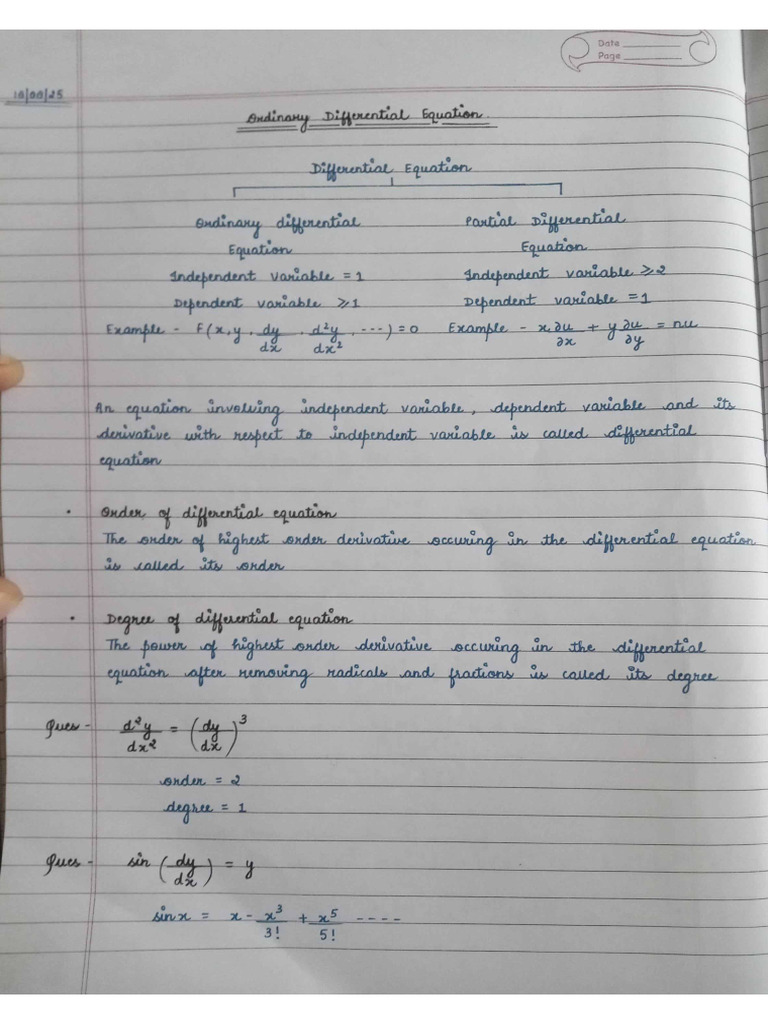 Date
Page
Ordinary Differential Equation.
Differential Equation
Ordinary differential Equation
Independent variable = 1
Dependent variable ⩾ 1
Example - F(x, y, dy/dx, d²y/dx², ---) = 0
Partial Differential Equation
Independent variable ⩾ 2
Dependent variable = 1
Example - x ∂u/∂x + y ∂u/∂y = nu
An equation involving independent variable, dependent variable and its
derivative with respect to independent variable is called differential
equation
• Order of differential equation
The order of highest order derivative occuring in the differential equation
is called its order
• Degree of differential equation
The power of highest order derivative occuring in the differential
equation after removing radicals and fractions is called its degree
Ques - d²y/dx² = (dy/dx)³
order = 2
degree = 1
Ques - sin (dy/dx) = y
sinx = x - x³/3! + x⁵/5! ----